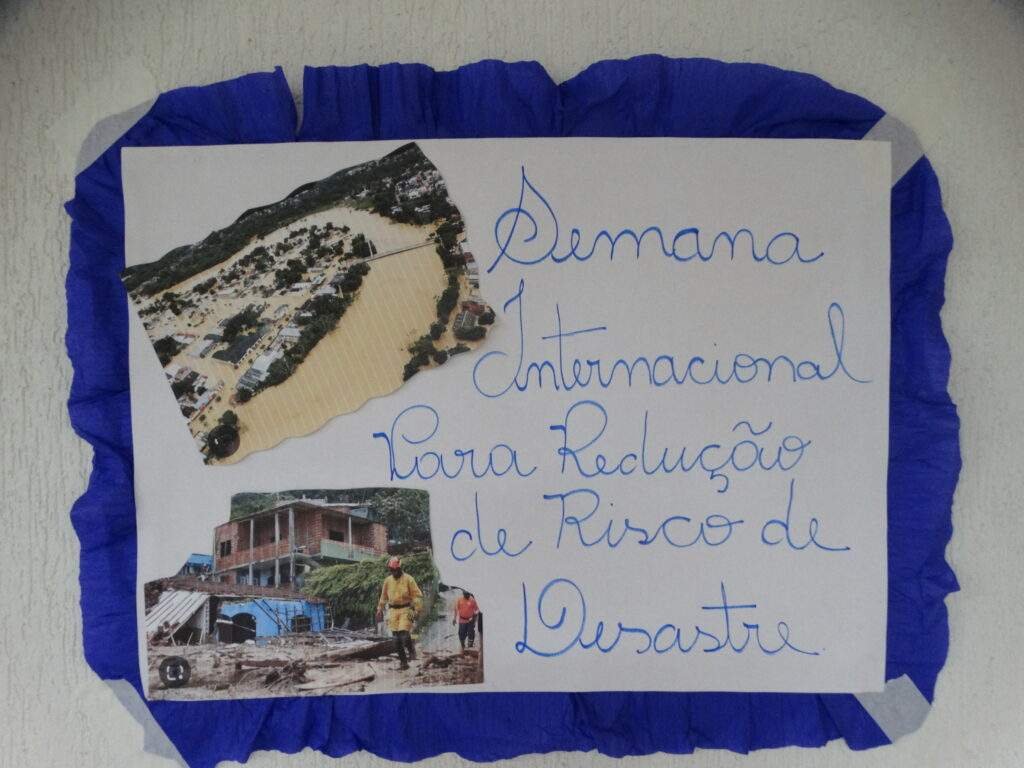 Semana
Internacional
Para Redução
de Risco de
Desastre.